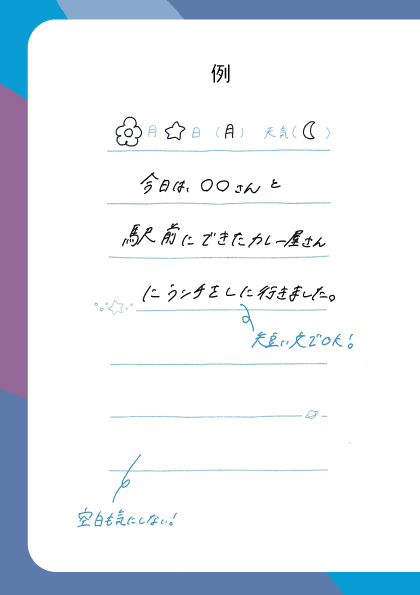 例
月 日 (月) 天気( )
今日は、〇〇さんと
駅前にできたカレー屋さん
にランチをしに行きました。
短い文でOK!
空白も気にしない!